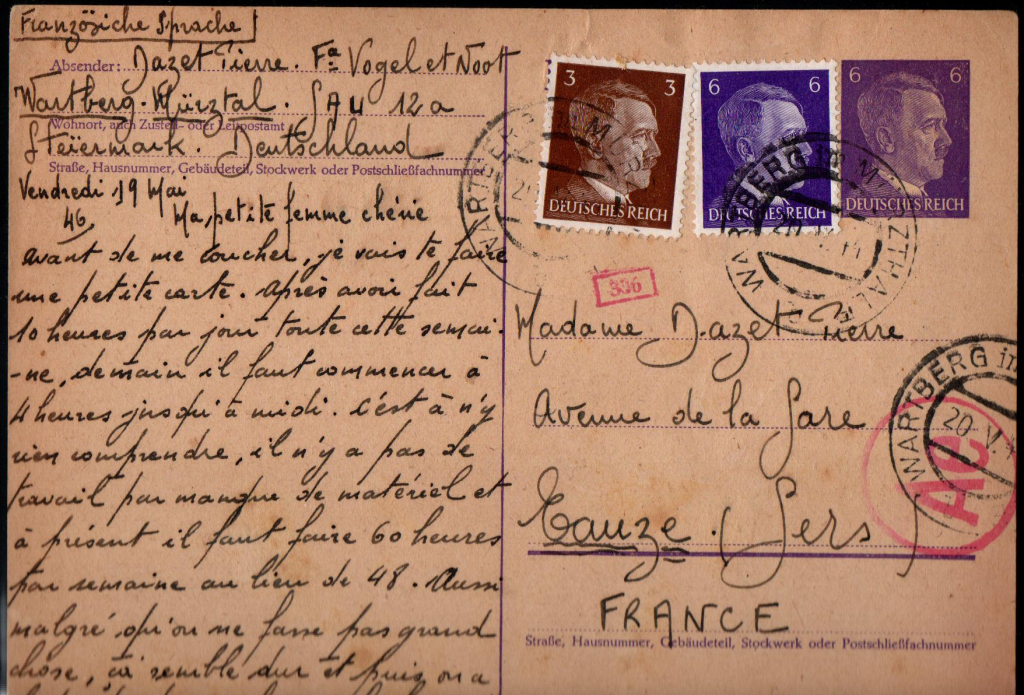 Französiche Sprache
Absender: Dazet Pierre. Fa Vogel et Noot
Wartberg. Mürztal. SAU 12a
Wohnort, auch Zustell- oder Leitpostamt
Steiermark. Deutschland
Straße, Hausnummer, Gebäudeteil, Stockwerk oder Postschließfachnummer
Vendredi 19 Mai
46, Ma petite femme chérie
avant de me coucher, je vais te faire
une petite carte. Après avoir fait
10 heures par jour toute cette semai-
-ne, demain il faut commencer à
4 heures jusqu'à midi. C'est à n'y
rien comprendre, il n'y a pas de
travail par manque de matériel et
à présent il faut faire 60 heures
par semaine au lieu de 48. Aussi
malgré qu'on ne fasse pas grand
chose, ça semble dur et puis on a
3 3
DEUTSCHES REICH
6 6
DEUTSCHES REICH
6 6
DEUTSCHES REICH
WARTBERG im M
WARTBERG im MÜRZTHALE
20. V. 44
336
Madame Dazet Pierre
Avenue de la Gare
WARTBERG im
20. V. 4
Ac
Eauze. (Gers)
FRANCE
Straße, Hausnummer, Gebäudeteil, Stockwerk oder Postschließfachnummer